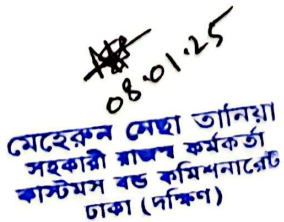 08.01.25
মেহেরুন নেছা তানিয়া
সহকারী রাজস্ব কর্মকর্তা
কাস্টমস বন্ড কমিশনারেট
ঢাকা (দক্ষিণ)